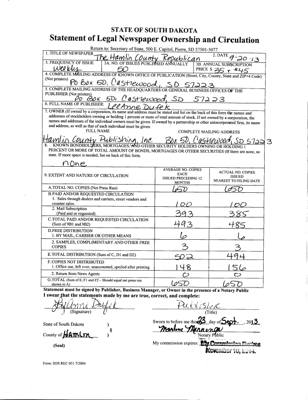 STATE OF SOUTH DAKOTA
Statement of Legal Newspaper Ownership and Circulation
Return to: Secretary of State, 500 E. Capitol, Pierre, SD 57501-5077
1. TITLE OF NEWSPAPER The Hamlin County Republican
2. DATE 9-20-13
3. FREQUENCY OF ISSUE Weekly
3A. NO. OF ISSUES PUBLISHED ANNUALLY 50
3B. ANNUAL SUBSCRIPTION PRICE $ 35 + $45
4. COMPLETE MAILING ADDRESS OF KNOWN OFFICE OF PUBLICATION (Street, City, County, State and ZIP+4 Code) (Not printers)
PO Box 50, Castlewood, SD 57223
5. COMPLETE MAILING ADDRESS OF THE HEADQUARTERS OR GENERAL BUSINESS OFFICES OF THE PUBLISHER (Not printer)
PO Box 50 Castlewood SD 57223
6. FULL NAME OF PUBLISHER: LeeAnne Dufek
7. OWNER (If owned by a corporation, its name and address must be stated and also on the back of this form the names and addresses of stockholders owning or holding 1 percent or more of total amount of stock. If not owned by a corporation, the names and addresses of the individual owners must be given. If owned by a partnership or other unincorporated firm, its name and address, as well as that of each individual must be given.
FULL NAME COMPLETE MAILING ADDRESS
Hamlin County Publishing, Inc Box 50, Castlewood, SD 57223
8. KNOWN BONDHOLDERS, MORTGAGES, AND OTHER SECURITY HOLDERS OWNING OR HOLDING 1 PERCENT OR MORE OF TOTAL AMOUNT OF BONDS, MORTGAGES OR OTHER SECURITIES (If there are none, so state. If more space is needed, list on back of this form.
none
9. EXTENT AND NATURE OF CIRCULATION
AVERAGE NO. COPIES EACH ISSUED PRECEDING 12 MONTHS
ACTUAL NO. COPIES ISSUED NEAREST TO FILING DATE
A. TOTAL NO. COPIES (Net Press Run) 650 650
B. PAID AND/OR REQUESTED CIRCULATION
1. Sales through dealers and carriers, street vendors and counter sales. 100 100
2. Mail Subscription (Paid and or requested) 393 385
C. TOTAL PAID AND/OR REQUESTED CIRCULATION (Sum of 9B1 and 9B2) 493 485
D. FREE DISTRIBUTION
1. BY MAIL, CARRIER OR OTHER MEANS 6 6
2. SAMPLES, COMPLIMENTARY AND OTHER FREE COPIES 3 3
E. TOTAL DISTRIBUTION (Sum of C, D1 and D2) 502 494
F. COPIES NOT DISTRIBUTED
1. Office use, left over, unaccounted, spoiled after printing 148 156
2. Return from News Agents 0 0
G. TOTAL (Sum of E, F1 and F2 - Should equal net press run shown in A) 650 650
Statement must be signed by Publisher, Business Manager, or Owner in the presence of a Notary Public
I swear that the statements made by me are true, correct, and complete:
(Signature) (Title)
Publisher
State of South Dakota )
County of Hamlin )
(Seal)
Sworn to before me this 23 day of Sept, 2013
Notary Public
My commission expires: My Commission Expires
November 10, 2014
Form: SOS REC 051 7/2004